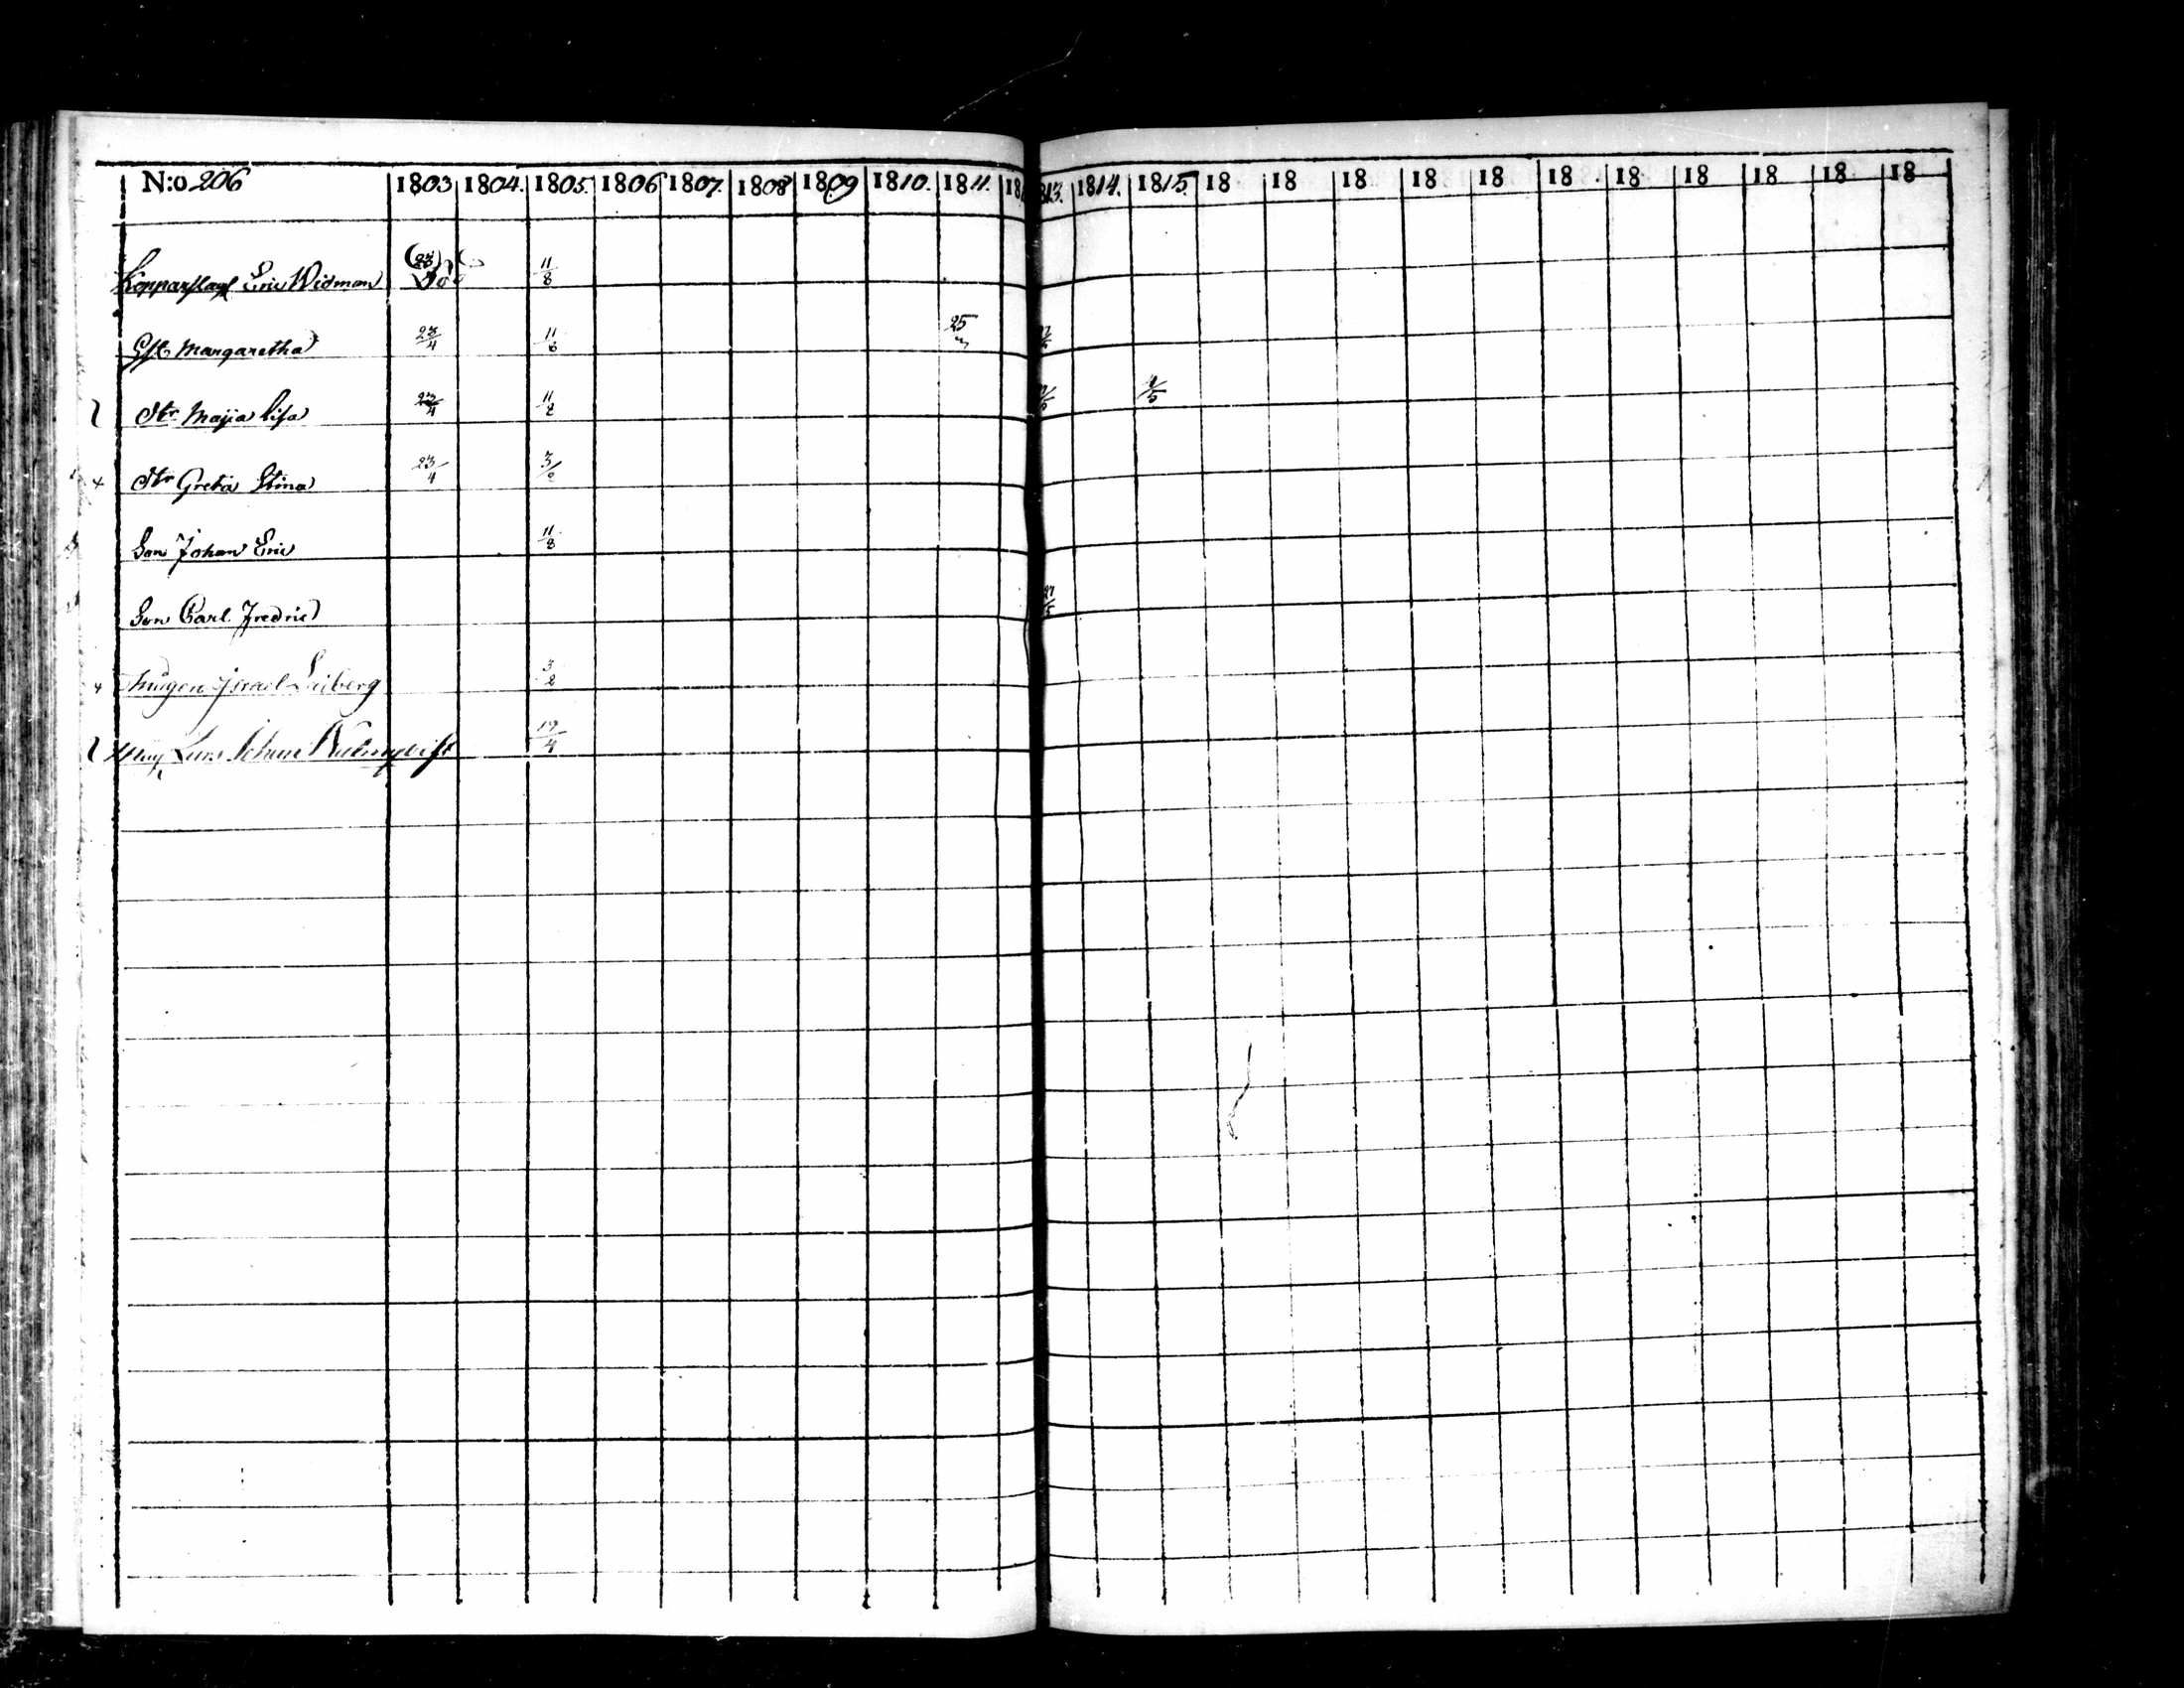 N:o 206 1803 1804. 1805. 1806 1807. 1808 1809 1810. 1811. 18 1813. 1814. 1815. 18 18 18 18 18 18 18 18 18 18 18
Kopparslag Eric Widman 23 11/8
Gst Margaretha 23/4 11/8 25 
Dtr Maija Lisa 23/4 11/8 4/5
Dtr Greta Stina 23/4 3/2
Son Johan Eric 11/8
Son Carl Fredric 27/5
Israel 3/2
Lars Johan 19/4